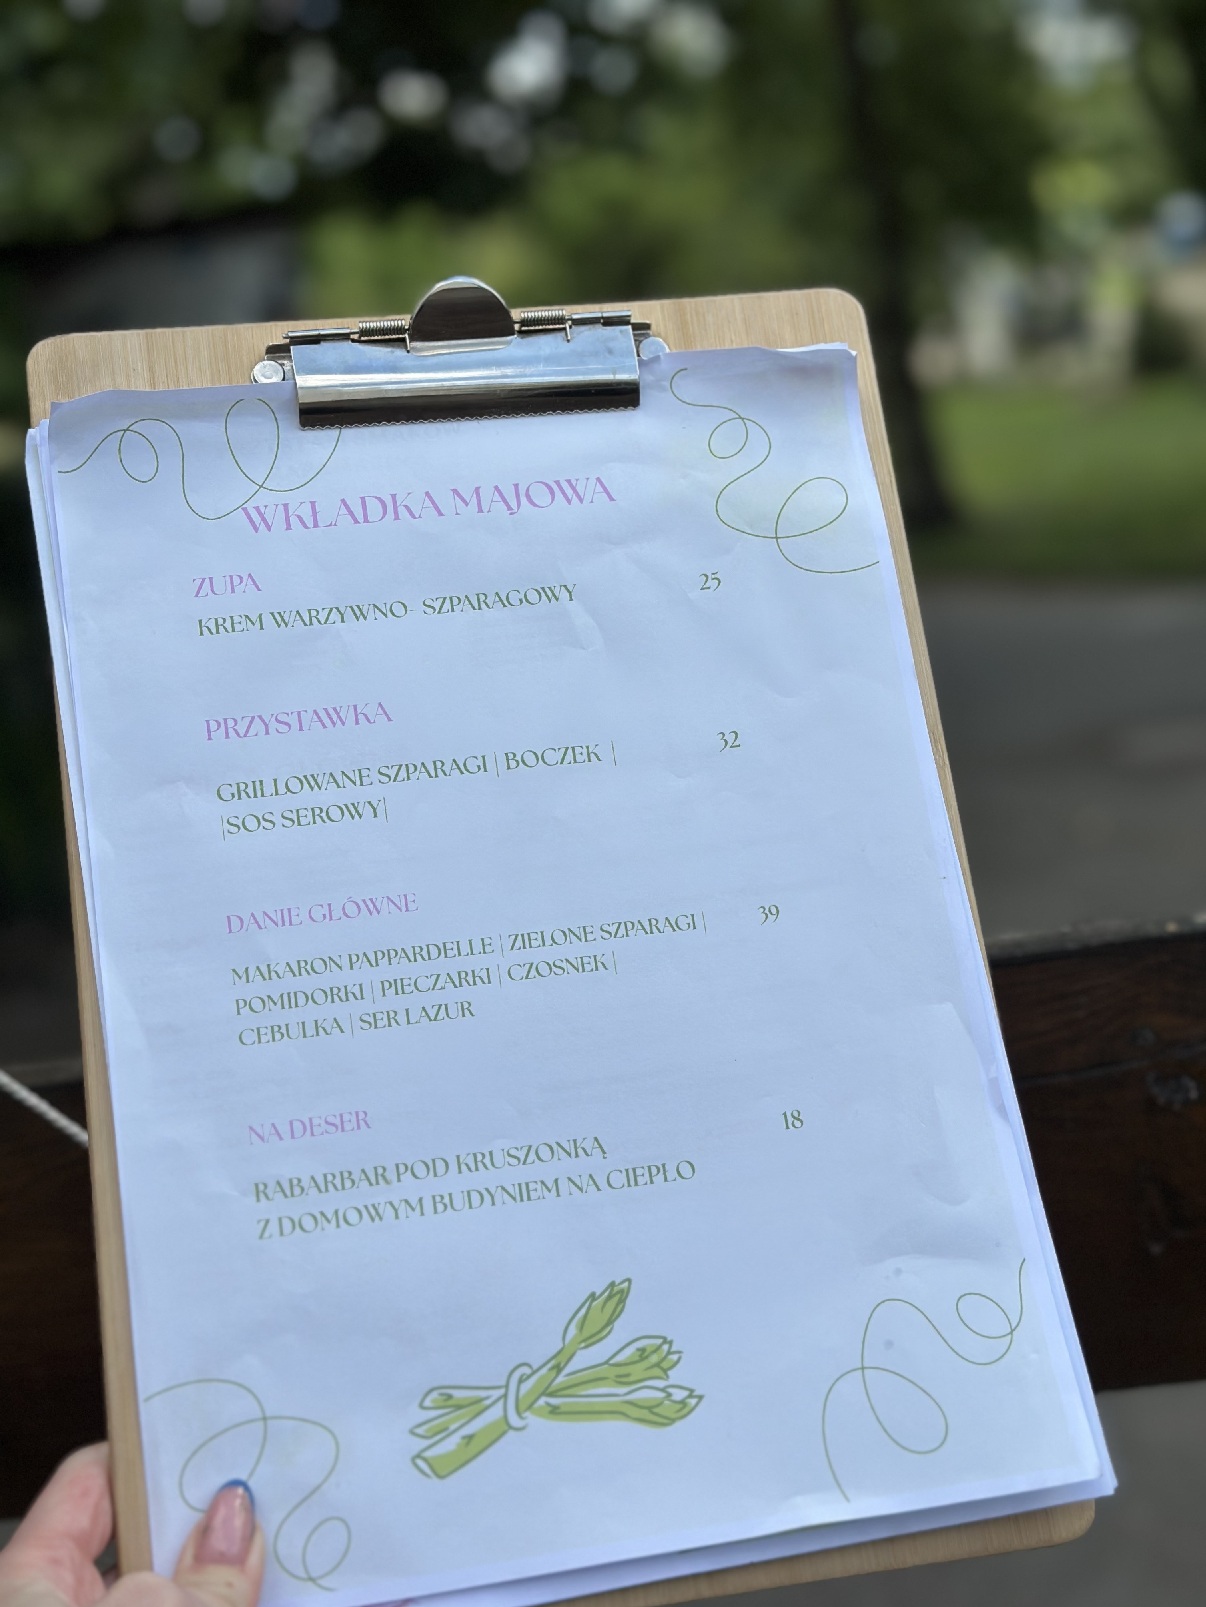 WKŁADKA MAJOWA
ZUPA
KREM WARZYWNO- SZPARAGOWY 25
PRZYSTAWKA
GRILLOWANE SZPARAGI | BOCZEK | 32
|SOS SEROWY|
DANIE GŁÓWNE
MAKARON PAPPARDELLE | ZIELONE SZPARAGI | 39
POMIDORKI | PIECZARKI | CZOSNEK |
CEBULKA | SER LAZUR
NA DESER
RABARBAR POD KRUSZONKĄ 18
Z DOMOWYM BUDYNIEM NA CIEPŁO